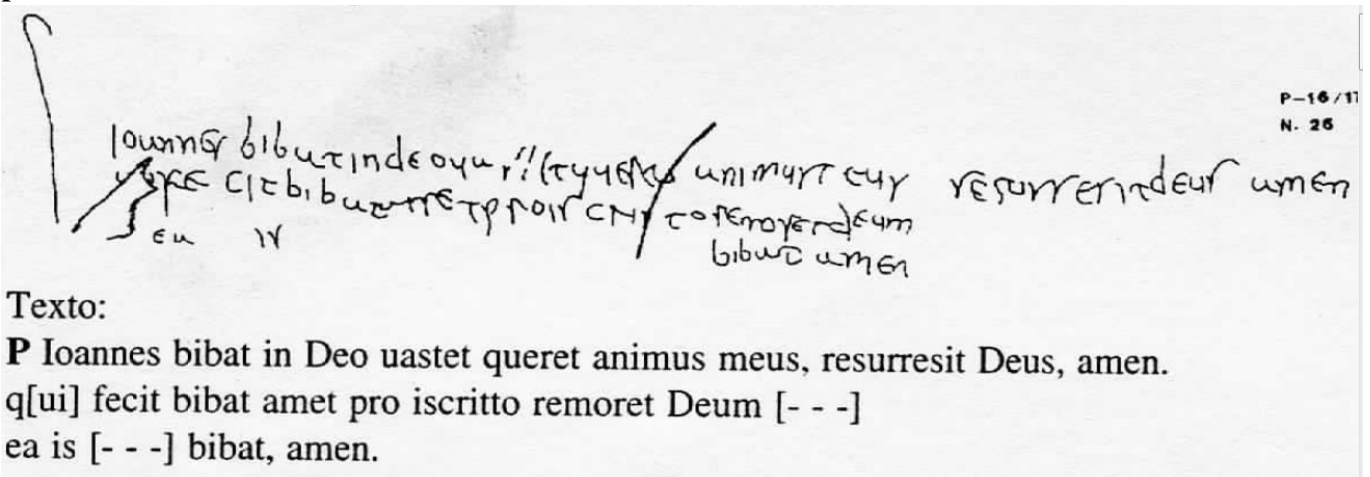 P-16/17
N. 26
Ioannes bibat in deo animus meus resurresit deus amen
bibat deum
ea is bibat amen
Texto:
P Ioannes bibat in Deo uastet queret animus meus, resurresit Deus, amen.
q[ui] fecit bibat amet pro iscritto remoret Deum [- - -]
ea is [- - -] bibat, amen.